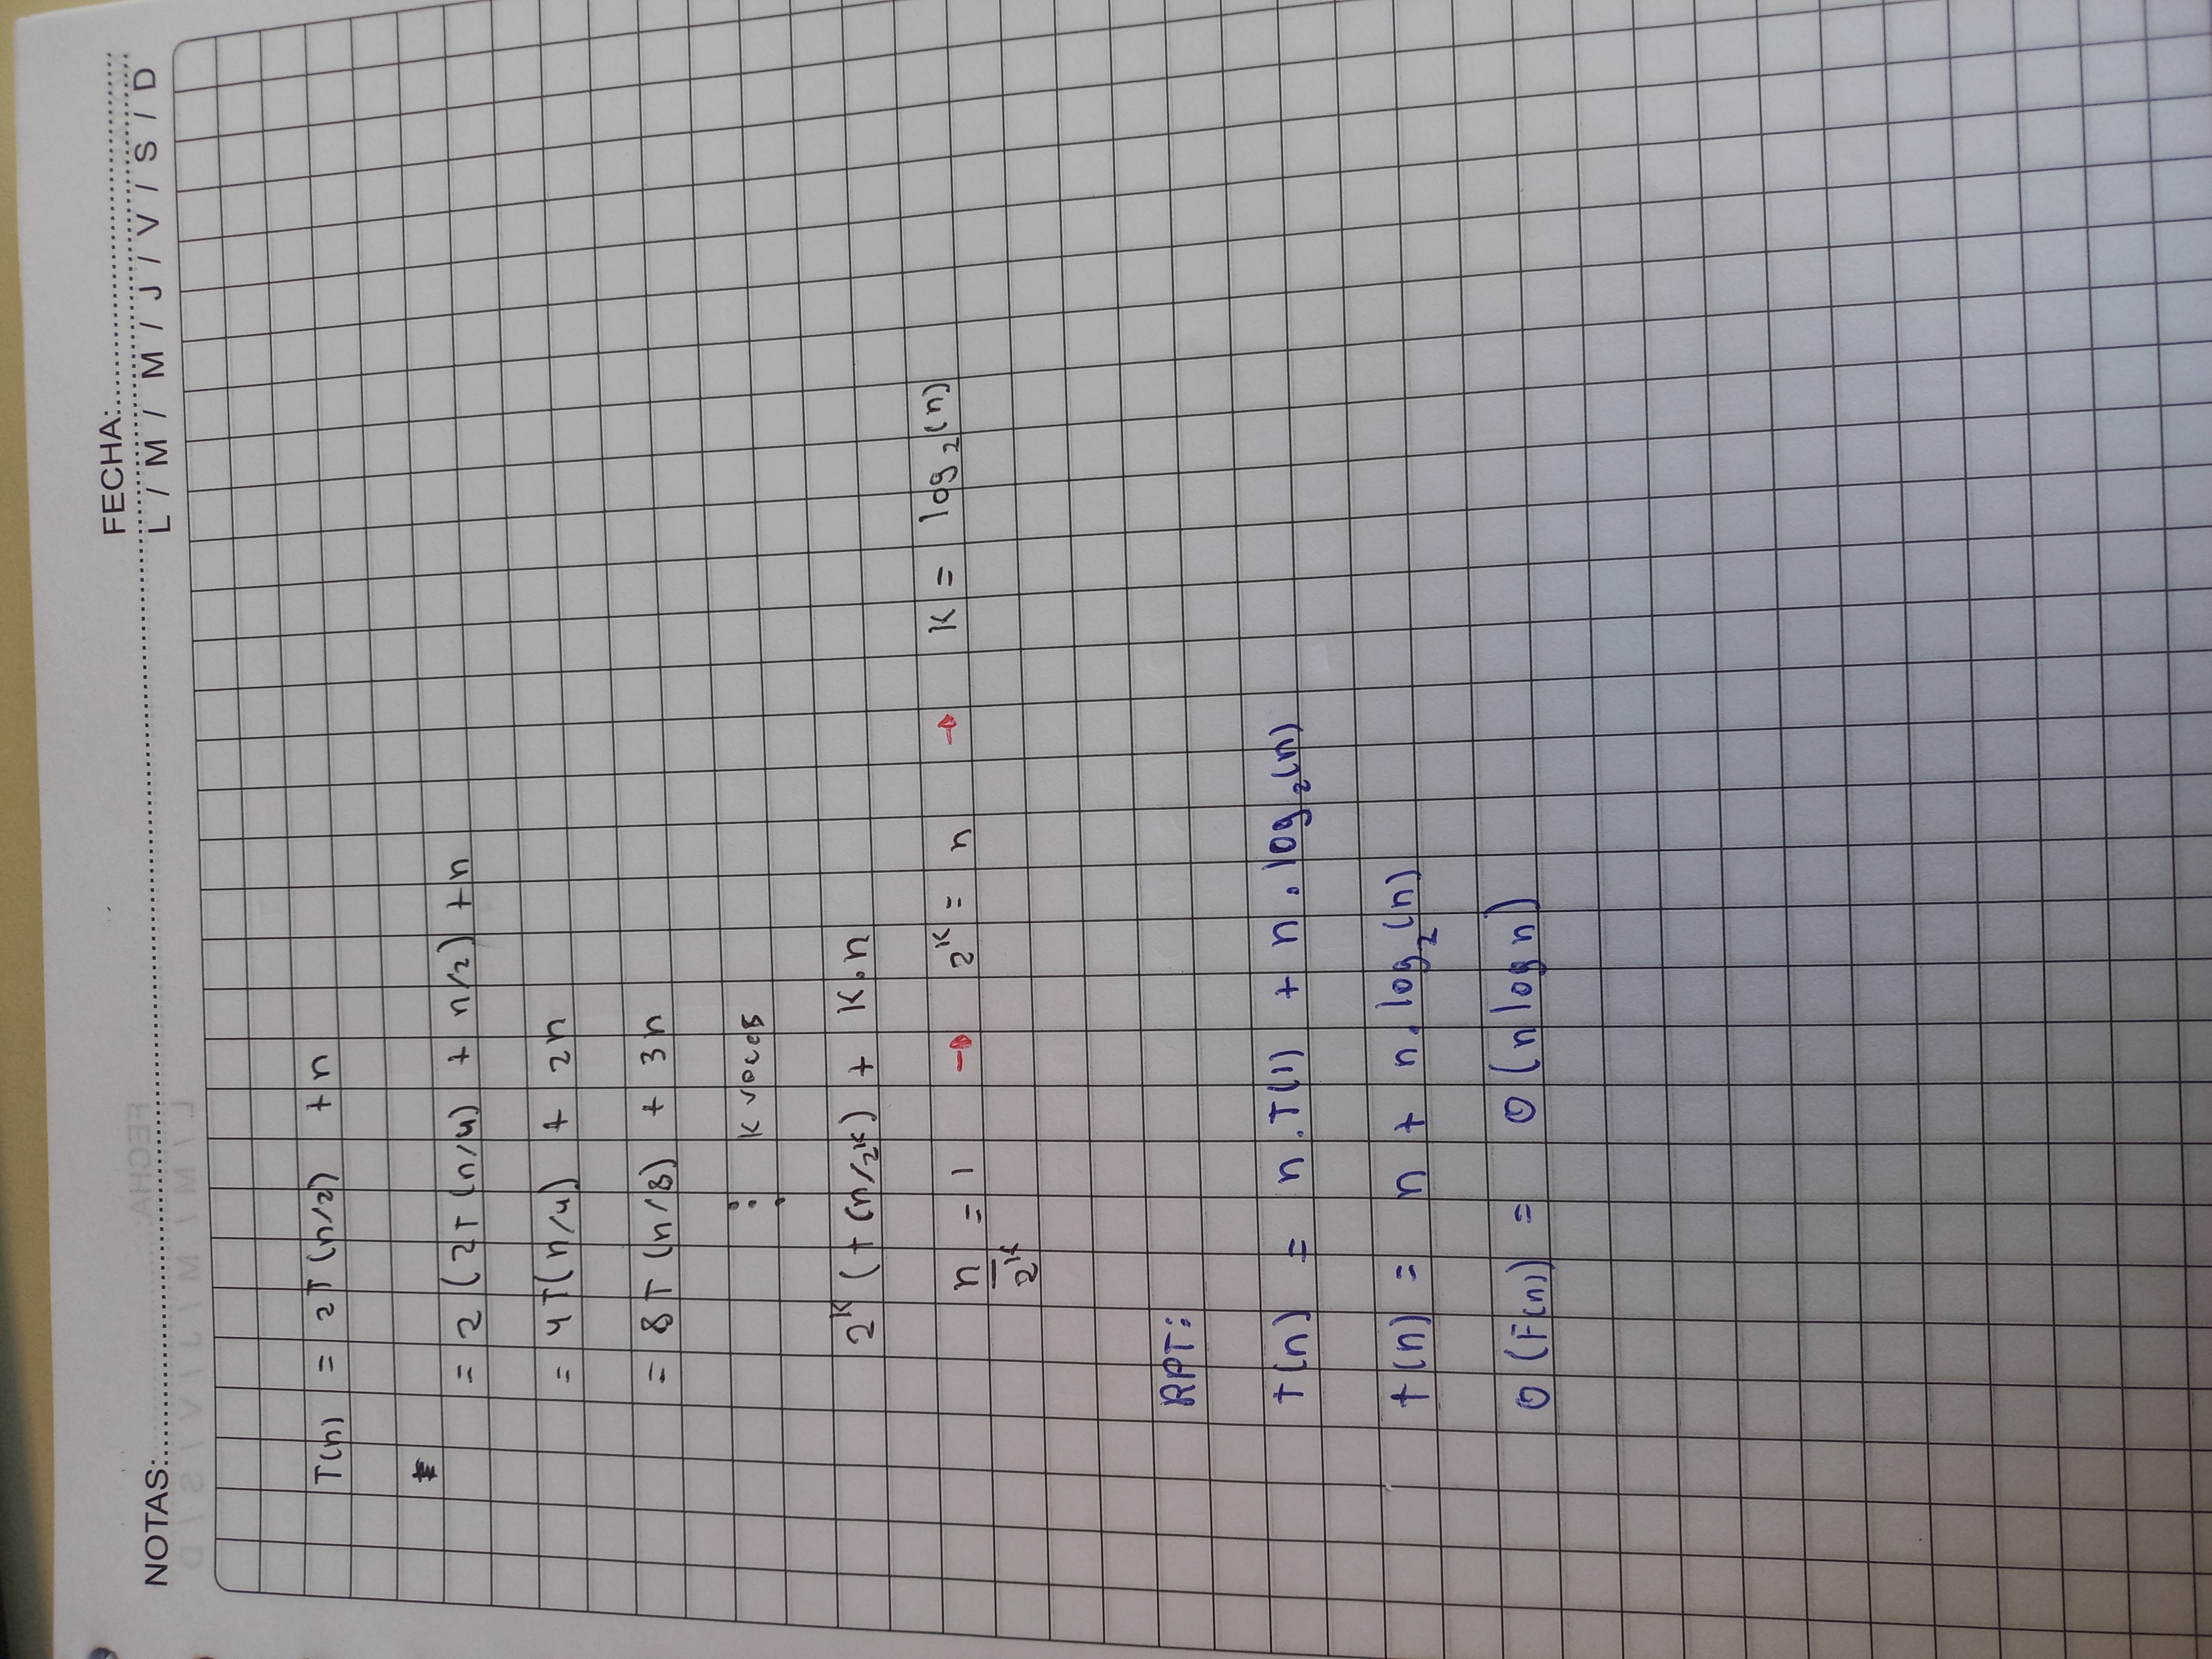 FECHA:
NOTAS:
L / M / M / J / V / S / D
T(n) = 2T(n/2) + n
= 2(2T(n/4) + n/2) + n
= 4T(n/4) + 2n
= 8T(n/8) + 3n
⋮ K veces
2^K (T(n/2^K) + K.n
n/2^K = 1 → 2^K = n → K = log₂(n)
RPT:
T(n) = n.T(1) + n.log₂(n)
T(n) = n + n.log₂(n)
O(F(n)) = O(n log n)